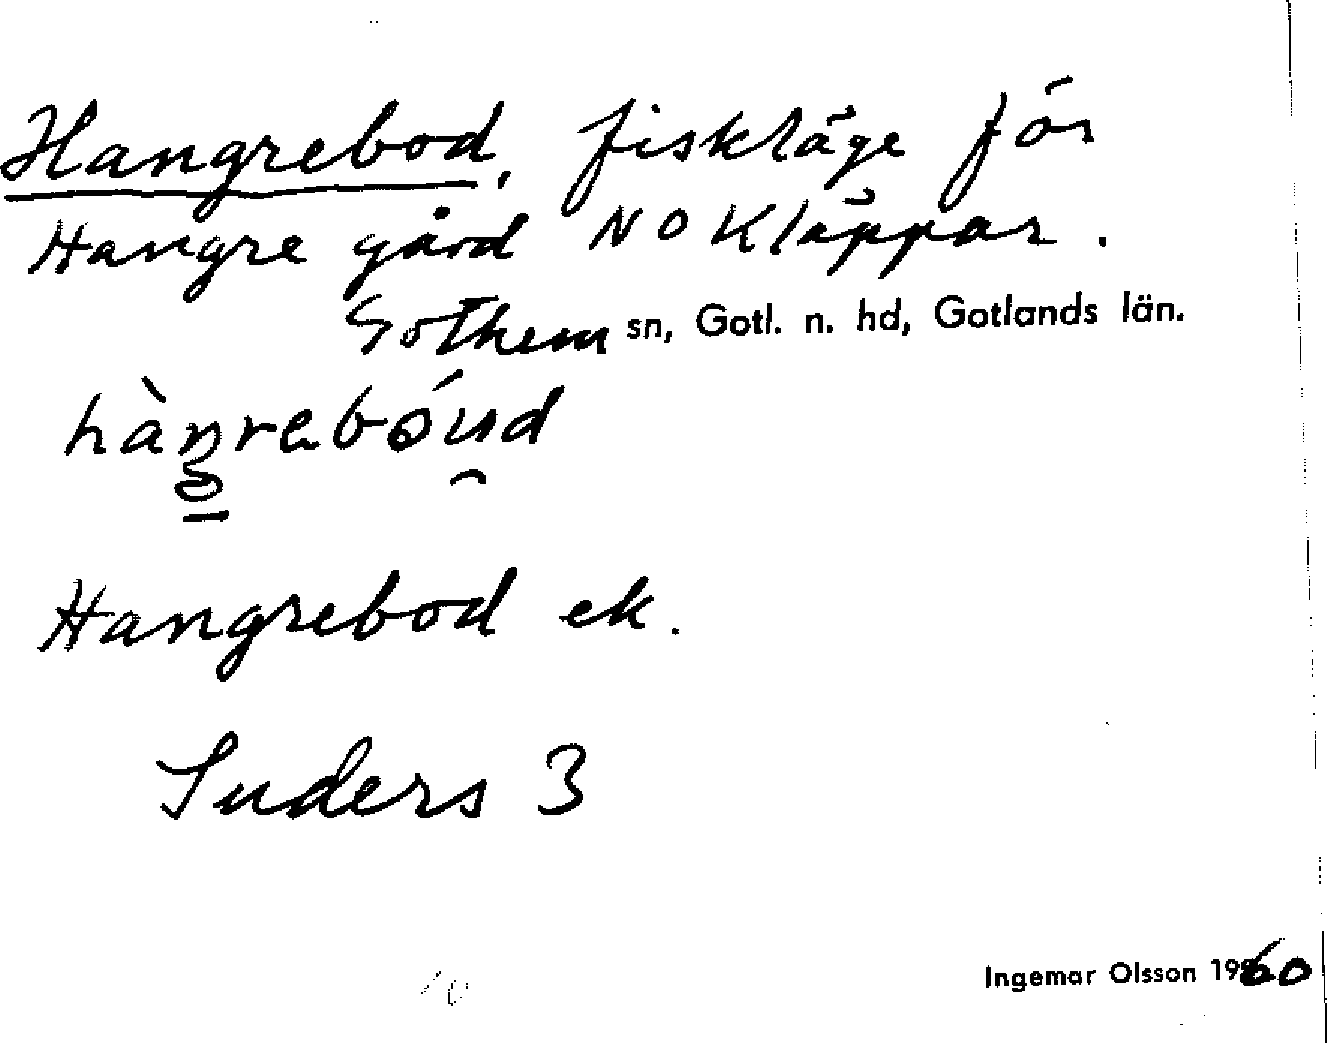 Hangrebod, fiskläge för
Hangre gård NO Kläppar.
Gothem sn, Gotl. n. hd, Gotlands län.
Hangrebod ek.
Suders 3
Ingemar Olsson 1960